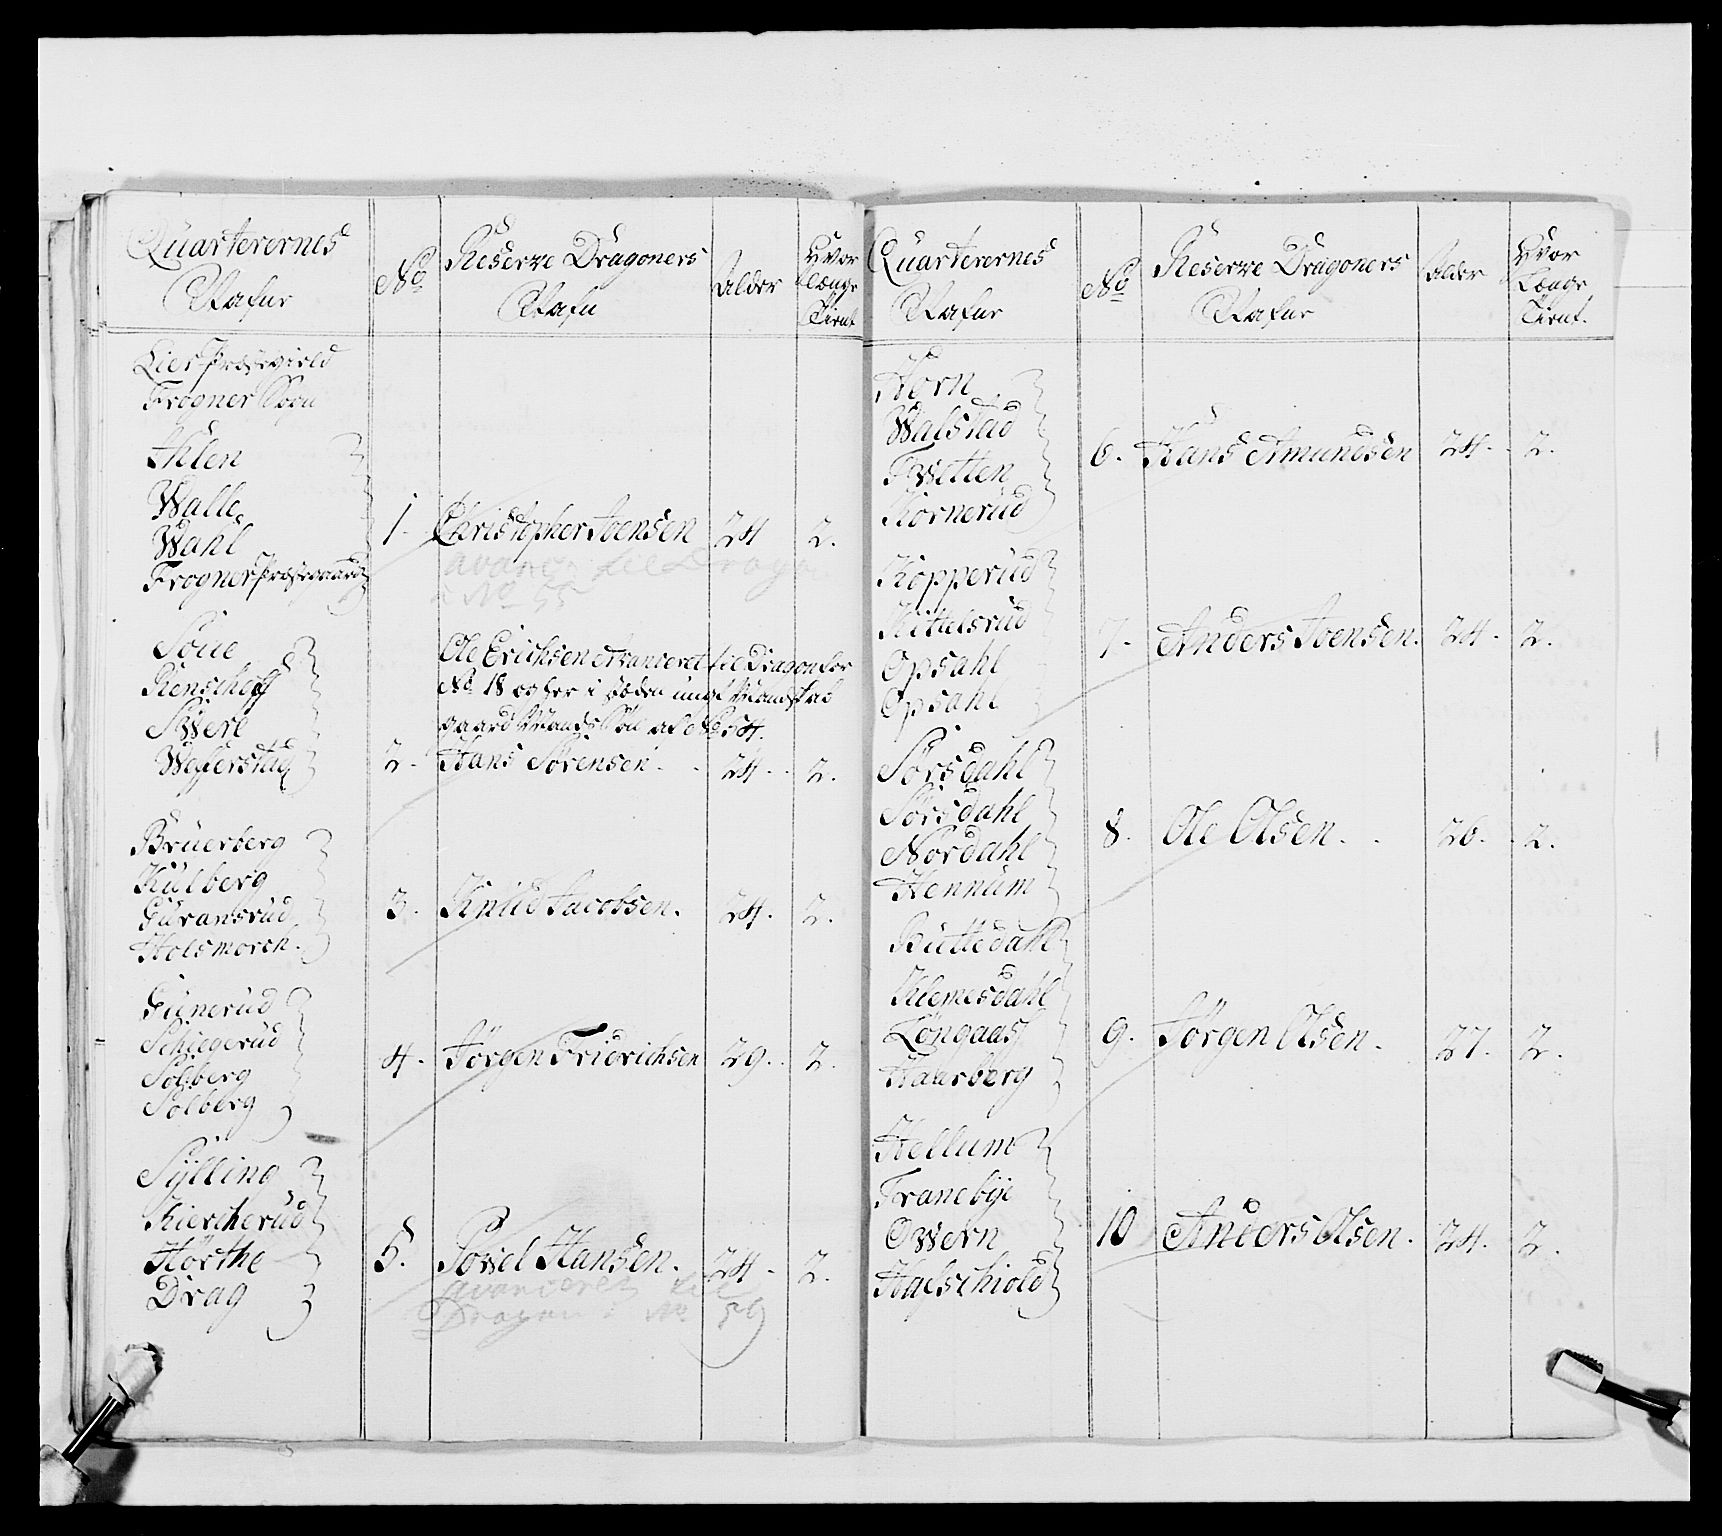 Quarterernes
Nafne
No
Reserve Dragoners
Nafn
Alder
Hvor
længe
Tient
Lier Præstegield
Frogner Sogn
Ihlen
Walle
Wahl
Frogner Præstegaard
1. Christopher Joensen 24 2.
avancer til Dragon
No 55
Soue
Renschoff
Swere
Wefferstad
Ole Erichsen avanceret til Dragon for
No. 18 og her i
gaard Mands Søn af No 54.
2. Hans Sørensen. 24. 2.
Bruerberg
Kulberg
Guransrud
Holsmorch.
3. Knud Jacobsen. 24. 2.
Gunerud
Schiegerud
Solberg
Solberg
4. Jörgen Fridrichsen 29. 2.
Sÿlling
Kiercherud
Hörthe
Drag
5. Powel Hansen. 24. 2.
avanceret til
Dragon i No 59
Quarterernes
Nafne
No
Reserve Dragoners
Nafne
Alder
Hvor
Længe
Tient.
Horn
Walstad
Twetten
Kornerud
6. Hans Amundsen 24. 2.
Kopperud
Kittelsrud
Opsahl
Opsahl
7. Anders Joensen. 24. 2.
Sørsdahl
Sørsdahl
Nordahl
Hennum
8. Ole Olsen. 26. 2.
Buttedahl
Klemesdahl
Longaas
Haarberg
9. Jörgen Olsen. 27. 2.
Hellum
Tranebÿe
Owern
Hafschiold
10 Anders Olsen. 24. 2.